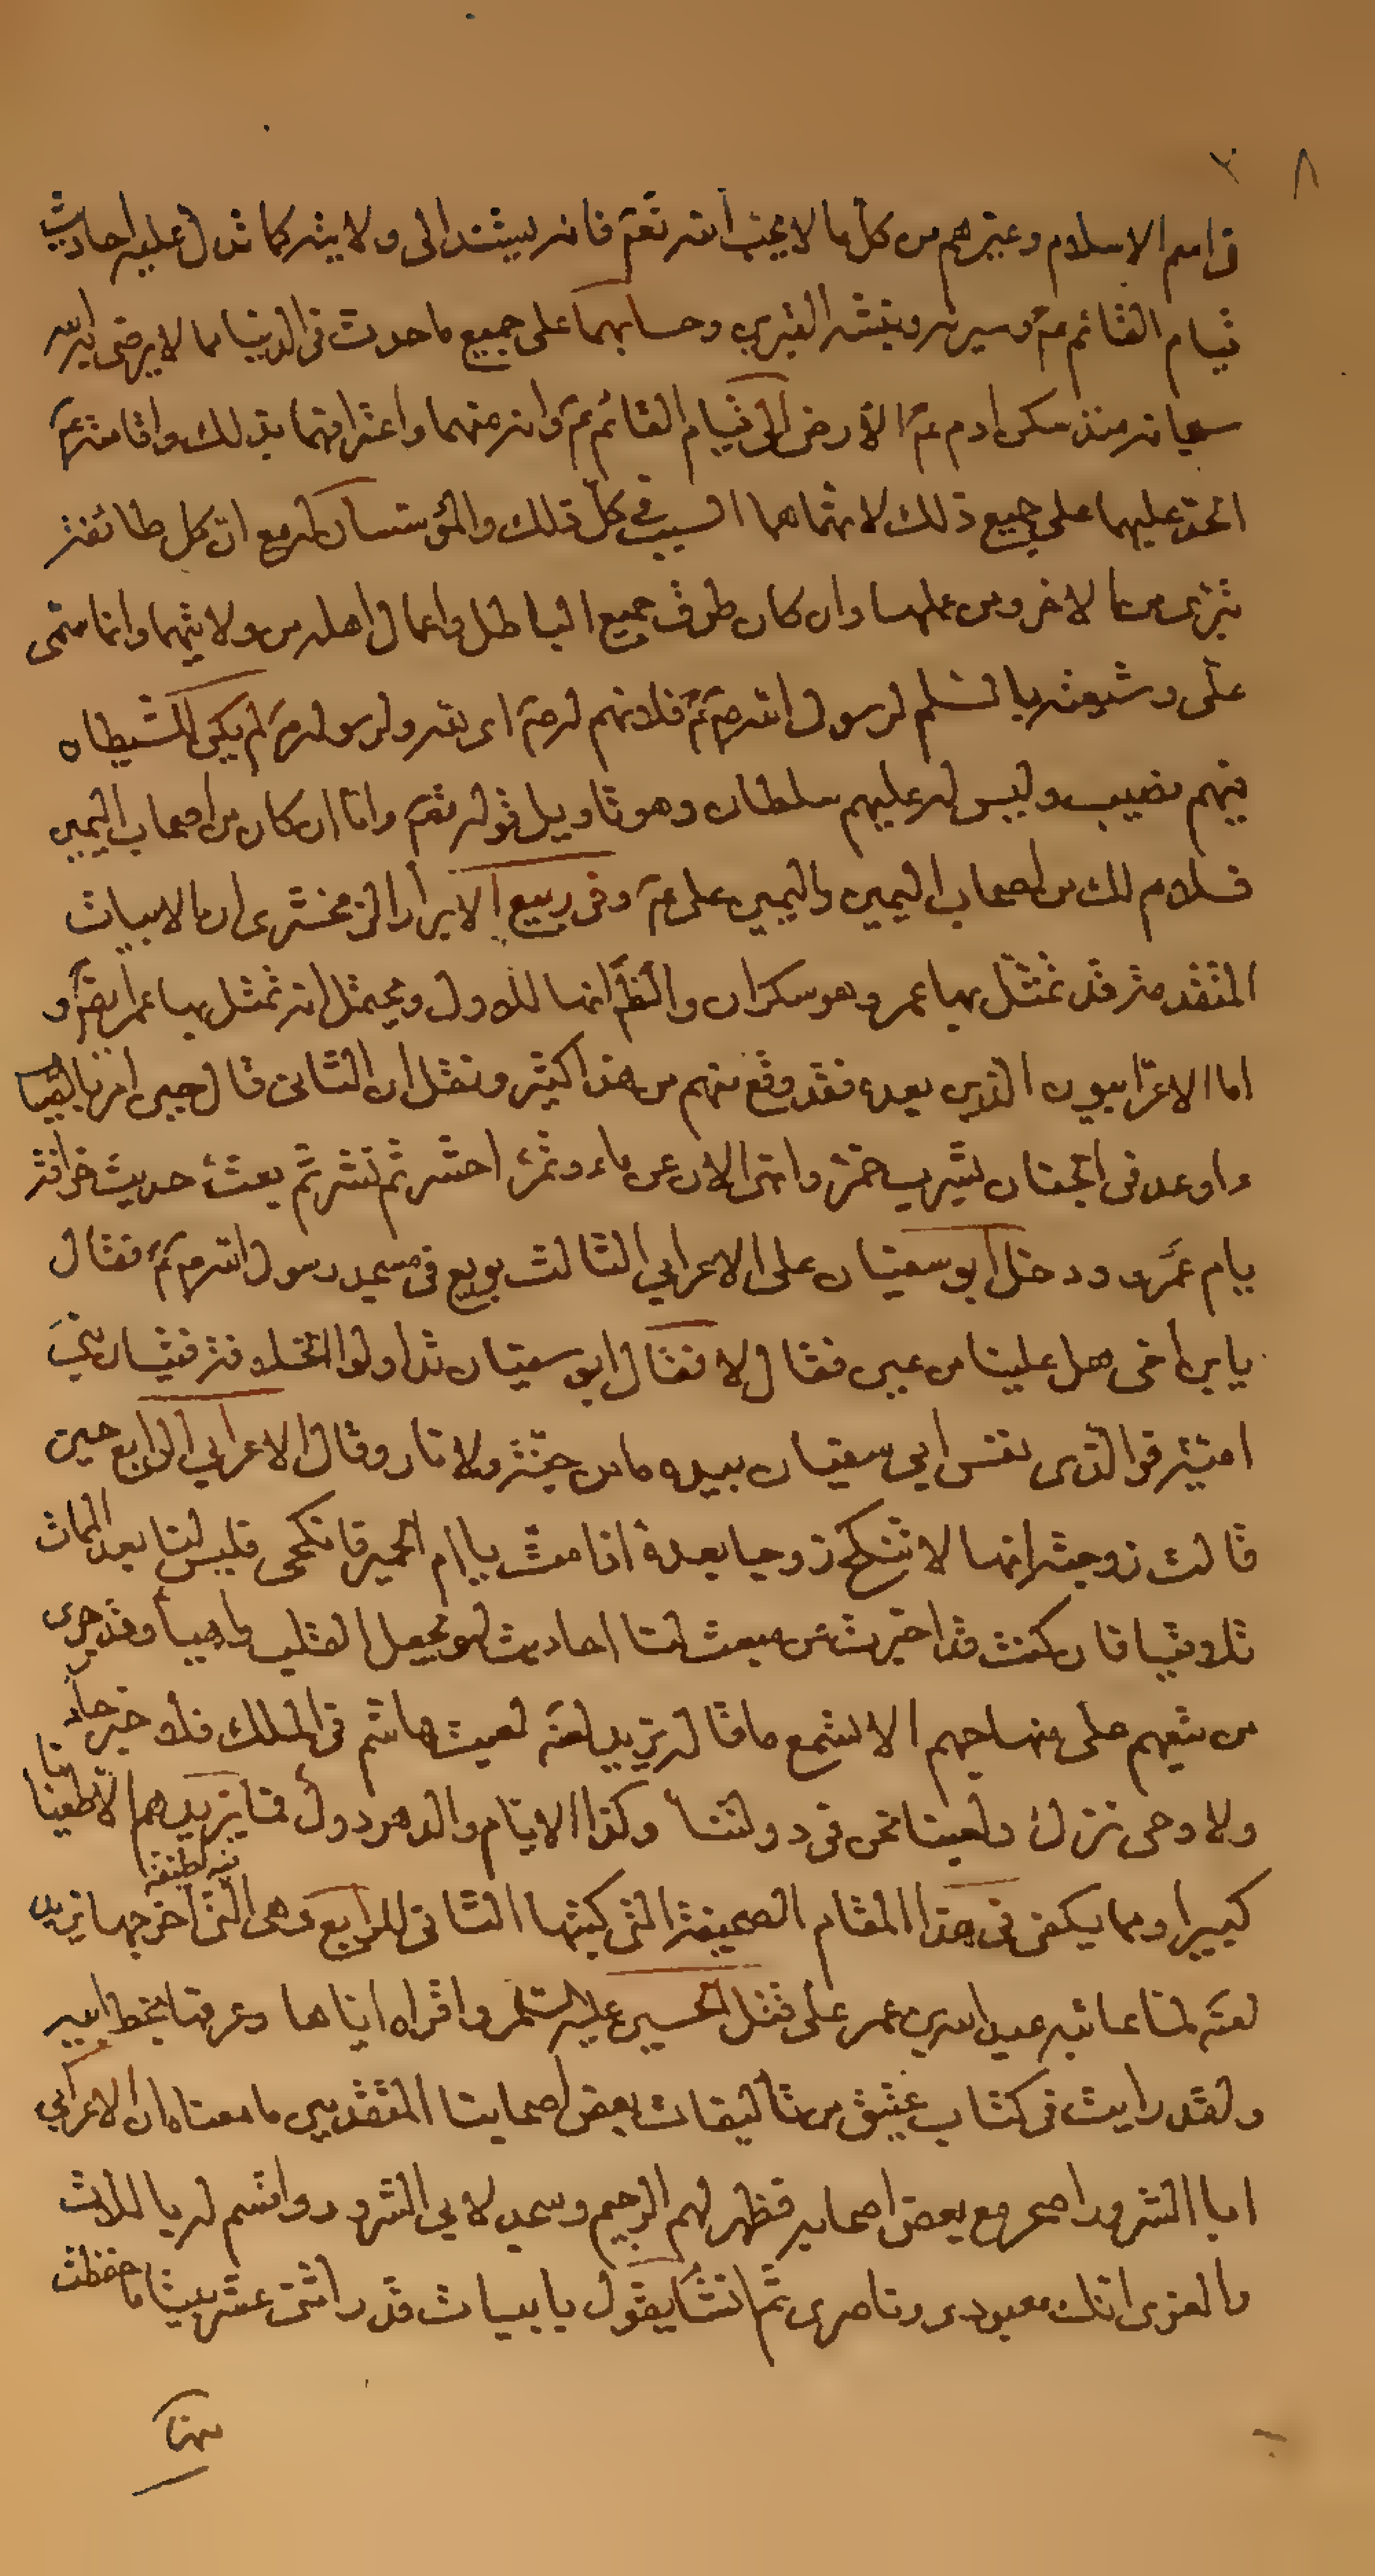 ٨
ق اسم الاسلام وغيرهم من كل ما لا يحب الله تعم فانه يستند الى ولايته كما تدل عليه احاديث
قيام القائم عم وسيرته ونبشه القبرين وحسابهما على جميع ما حدث فى الدنيا مما لا يرضى الله
سبحانه منذ سكن ادم عم الارض الى قيام القائم عم وانه منهما واعترافهما بذلك واقامته عم
الحد عليهما على جميع ذلك لانهما هما السبب فى كل ذلك والمؤسسان له مع ان كل طائفة
تبرى من الاخر ومن عملها وان كان طرف جميع الباطل واعمال اهله من ولايتهما وانما سمى
على وشيعته بالسلم لرسول الله ص عم فلانهم له ص اى لله ولرسوله ص لم يكن للشيطان
فيهم نصيب وليس له عليهم سلطان وهو تاويل قوله تعم واما ان كان من اصحاب اليمين
فسلام لك من اصحاب اليمين واليمين على عم وفى ربيع الابرار الزمخشرى ان الابيات
المتقدمة قد تمثل بها عمر وهو سكران والظّ انها للاول ويحتمل انه تمثل بها عمر ايضا و
اما الاعرابيون الذين بعده فقد وقع منهم من هذا اكثر ونقل ان الثانى قال حين امر بالقيا
ء اوعد فى الجنان بشرب خمر وانهى الان عن ماء وتمر احشر ثم نشر ثم بعث حديث خرافة
يا ام عمرو ودخل ابو سفيان على الاعرابي الثالث بويع فى مسجد رسول الله ص عم فقال
يا بن اخى هل علينا من عين فقال لا فقال ابو سفيان تداولوا الخلافة فتيان بنى
امية فو الذى نفس ابى سفيان بيده ما من جنة ولا نار وقال الاعرابي الرابع حين
قالت زوجته انها لا تنكح زوجا بعده اذا مت يا ام الحمير فانكحى فليس لنا بعد الممات
تلاقيا فان كنت قد اخبرت عن مبعث لنا احاديث لهو تجعل القلب واهيا وقد جرى
من شيعهم على منهاجهم الا لتسمع ما قاله يزيد لعنه لعبت هاشم فى الملك فلا خبر جاء
ولا وحى نزل ولعبنا نحن فى دولتنا وكذا الايام والدهر دول فما يزيدهم الا طغيانا
كبيرا ومما يكفى فى هذا المقام الصحيفة التى كتبها الثانى للرابع وهى التى اخرجها يزيد
لعنه لما عاتبه عبد الله بن عمر على قتل الحسين عليه السلم واقراه اياها وعرفها بخط ابيه
ولقد رايت فى كتاب عتيق من تاليفات بعض اصحابنا المتقدمين ما معناه ان الاعرابي
ابا الشرور اصحر مع بعض اصحابه فظهر لهم الرجيم وسجد لابي الشرور واقسم له باللات
والعزى انك معبودى وناصرى ثم انشا يقول بابيات قدر اثنى عشر بيتا ما حفظت
منها